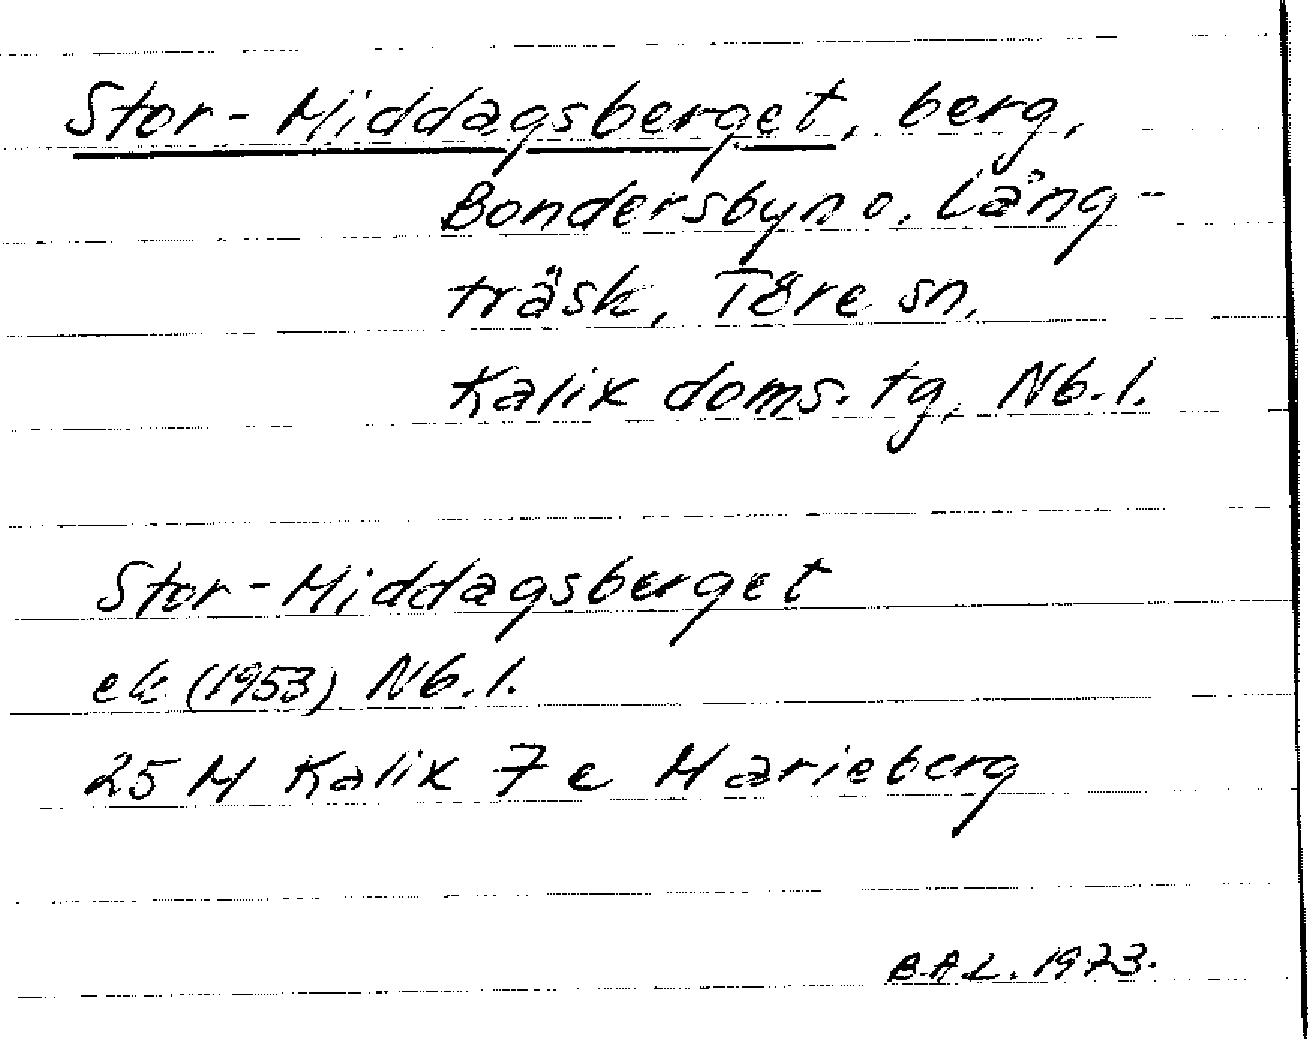 Stor-Middagsberget, berg,
Bondersbyn o. Lång-
träsk, Töre sn,
Kalix doms. tg, Nb. l.
Stor-Middagsberget
ek (1953) Nb. l.
25 M Kalix 7 c Marieberg
B.A.L. 1973.